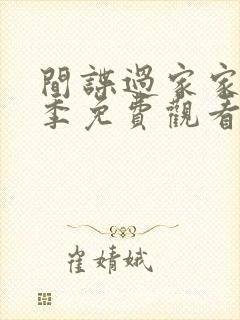 間諜過家家
季免費觀看
崔婧娥